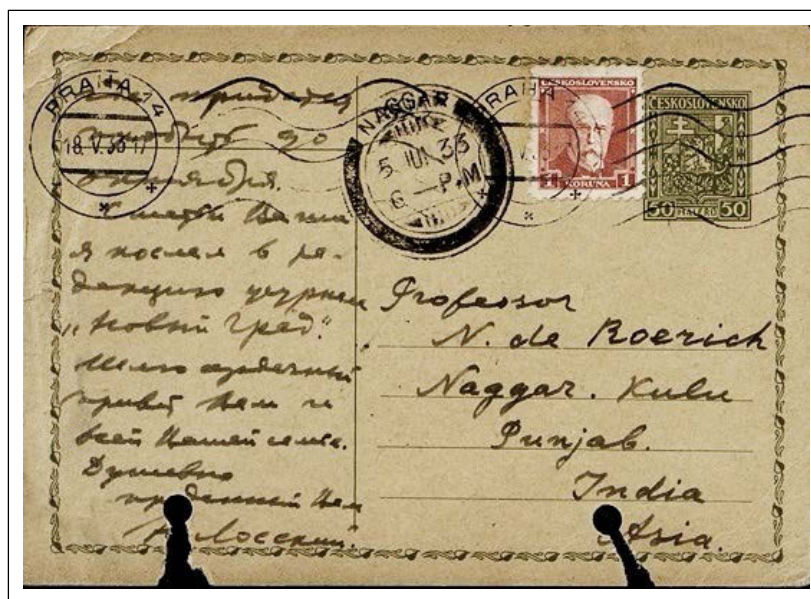 PRAHA 74
18.V.33 17
NAGGAR
5 JUN. 33
6 — P.M
PRAHA 74
ČESKOSLOVENSKO
1 KORUNA 1
ČESKOSLOVENSKO
50 HALÉŘŮ 50
придется
до
октября.
Статьи Ваши
я послал в ре-
дакцию журнала
„Новый Град".
Шлю сердечный
привет Вам и
всей Вашей семье.
Душевно
преданный Вам
Н. Лосский.
Professor
N. de Roerich
Naggar. Kulu
Punjab.
India
Asia.